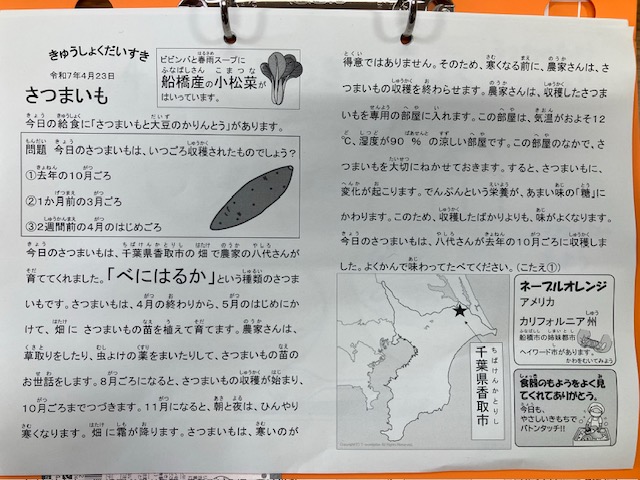 きゅうしょくだいすき
令和7年4月23日
さつまいも
ビビンバと春雨スープに
船橋産の小松菜が
はいっています。
今日の給食に「さつまいもと大豆のかりんとう」があります。
問題 今日のさつまいもは、いつごろ収穫されたものでしょう?
①去年の10月ごろ
②1か月前の3月ごろ
③2週間前の4月のはじめごろ
今日のさつまいもは、千葉県香取市の畑で農家の八代さんが
育ててくれました。「べにはるか」という種類のさつま
いもです。さつまいもは、4月の終わりから、5月のはじめにか
けて、畑に さつまいもの苗を植えて育てます。農家さんは、
草取りをしたり、虫よけの薬をまいたりして、さつまいもの苗の
お世話をします。8月ごろになると、さつまいもの収穫が始まり、
10月ごろまでつづきます。11月になると、朝と夜は、ひんやり
寒くなります。畑に霜が降ります。さつまいもは、寒いのが
得意ではありません。そのため、寒くなる前に、農家さんは、さ
つまいもの収穫を終わらせます。農家さんは、収穫したさつま
いもを専用の部屋に入れます。この部屋は、気温がおよそ12
℃、湿度が90 %の涼しい部屋です。この部屋のなかで、さつ
まいもを大切にねかせておきます。すると、さつまいもに、
変化が起こります。でんぷんという栄養が、あまい味の「糖」に
かわります。このため、収穫したばかりよりも、味がよくなります。
今日のさつまいもは、八代さんが去年の10月ごろに収穫しま
した。よくかんで味わってたべてください。(こたえ①)
千葉県香取市
ネーブルオレンジ
アメリカ
カリフォルニア州
船橋市の姉妹都市
ヘイワード市があります。
かわをむいてみよう
食器のもようをよく見
てくれてありがとう。
今日も、
やさしいきもちで
バトンタッチ!!